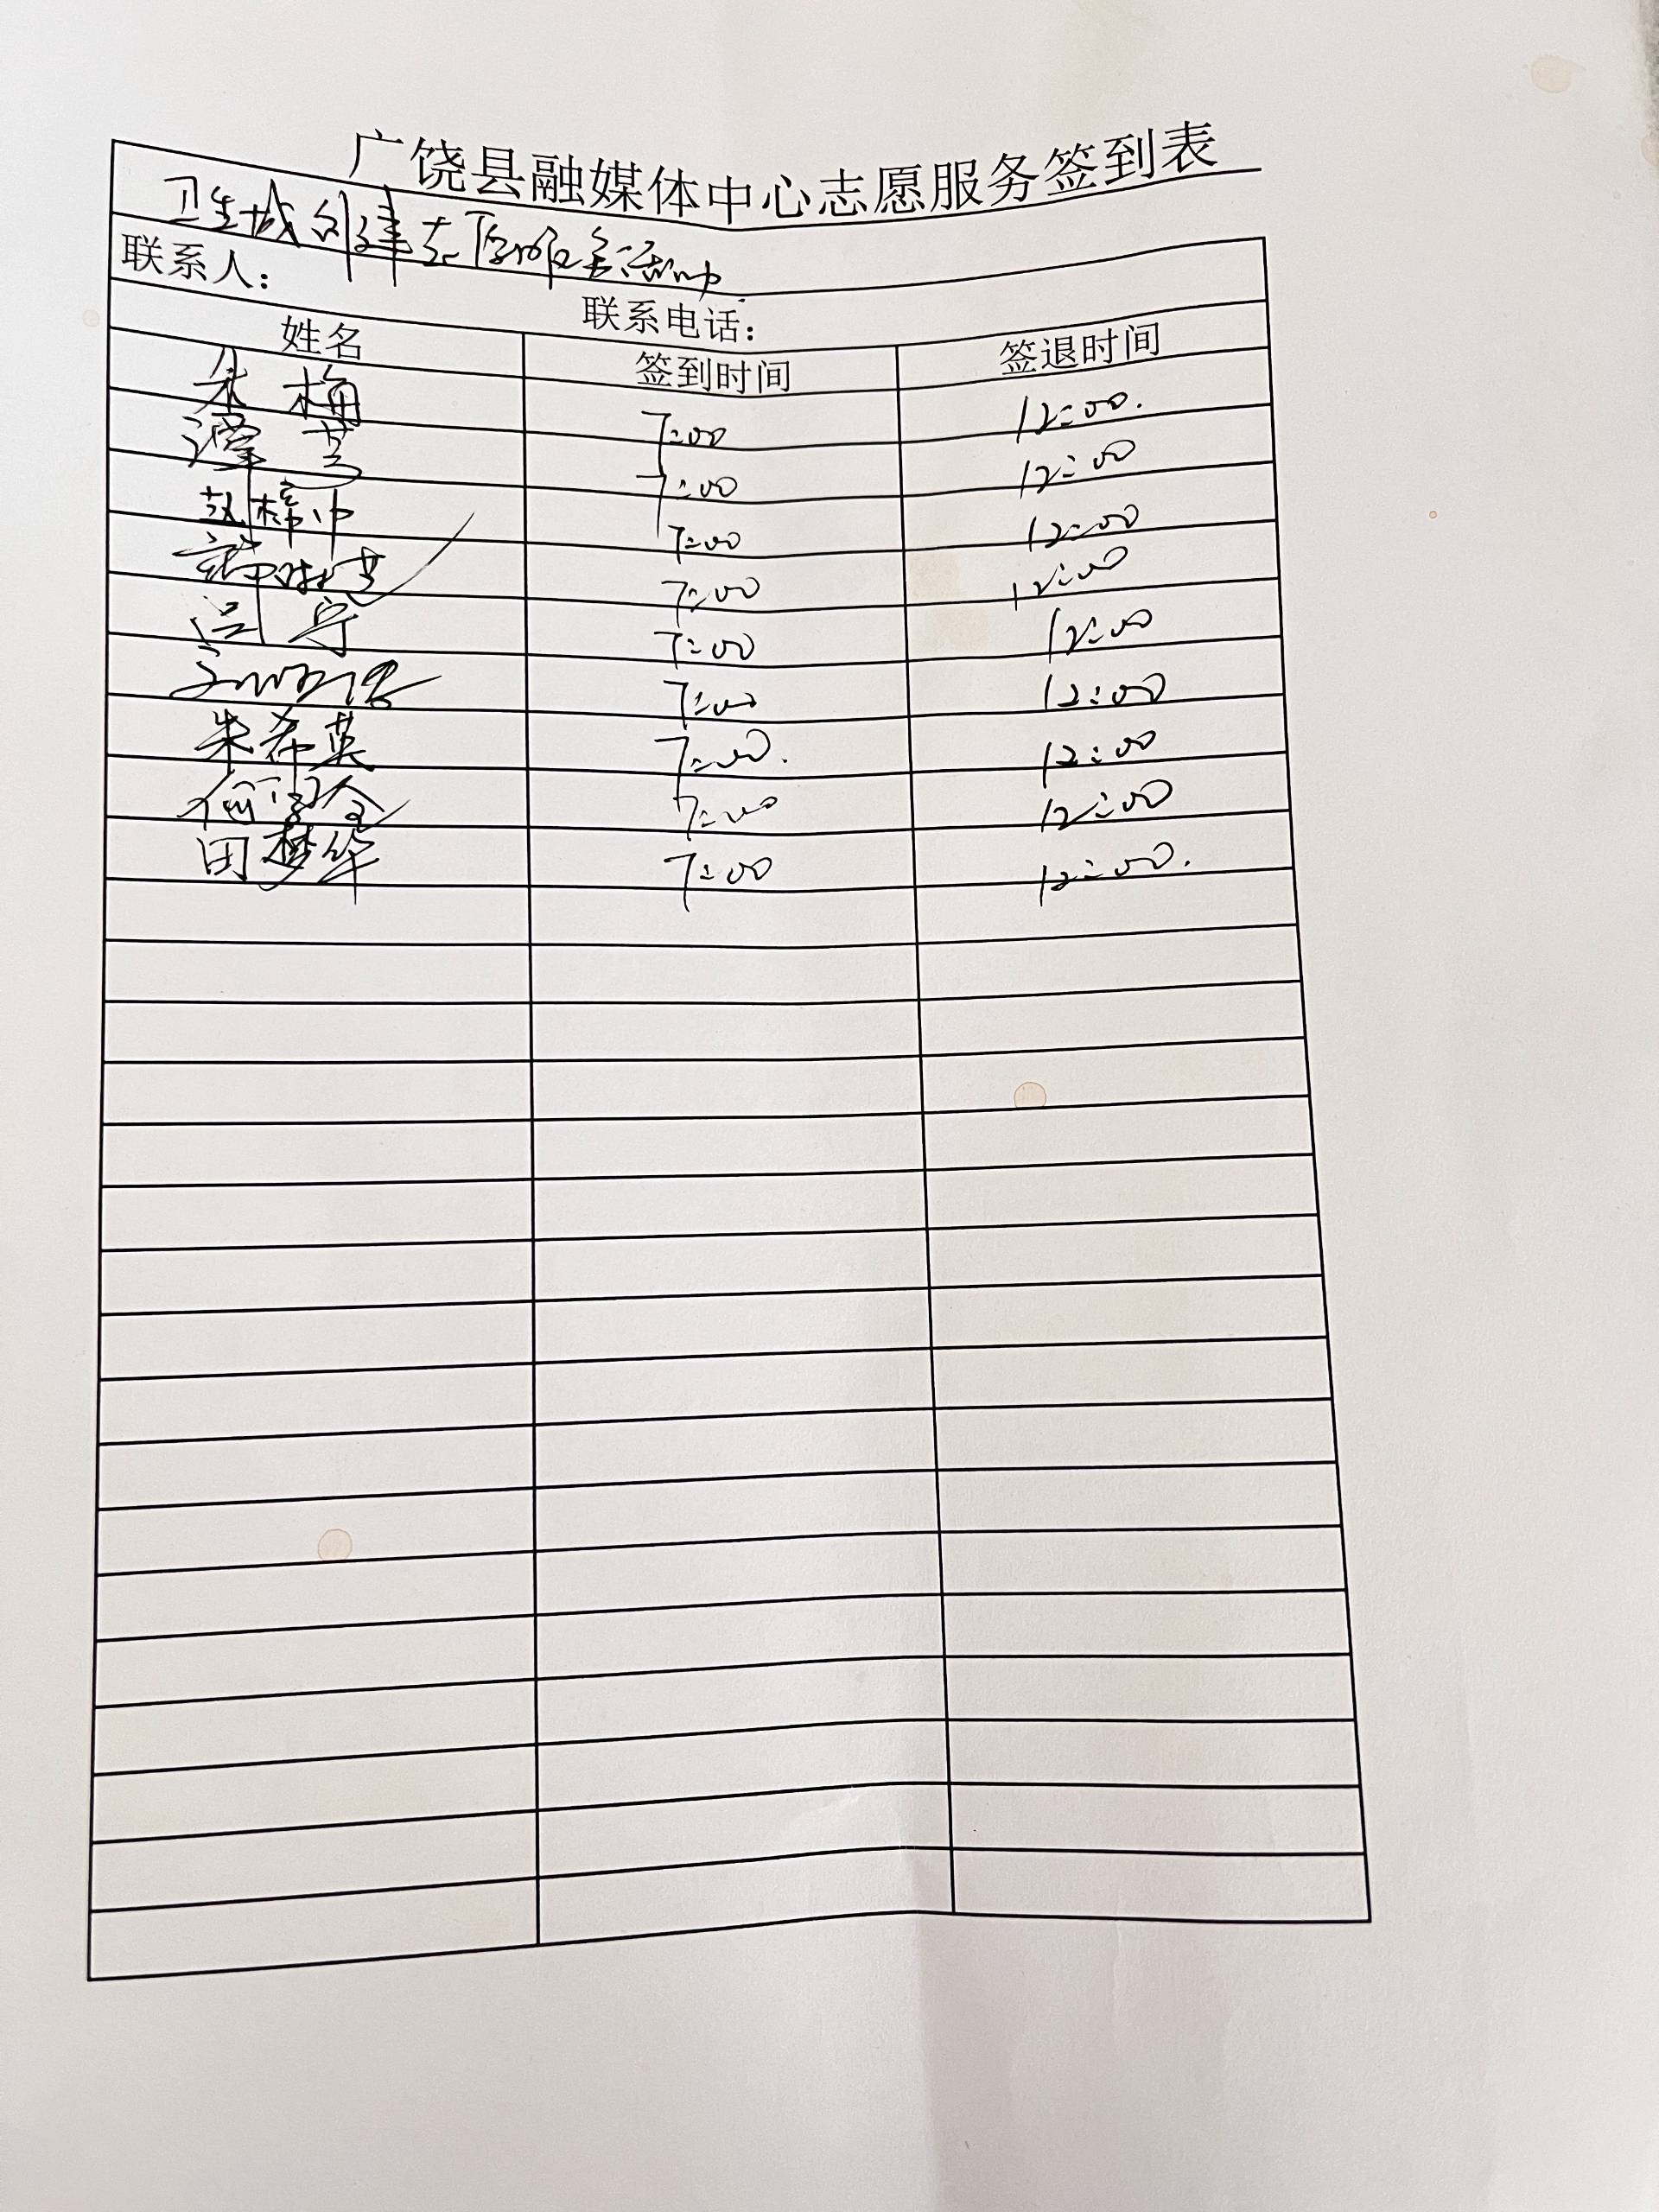 广饶县融媒体中心志愿服务签到表
卫生城创建志愿服务活动
联系人: 联系电话:
姓名 签到时间 签退时间
朱梅 7:00 12:00.
谭芸 7:00 12:00
赵梓小 7:00 12:00
7:00 12:00
宁 7:00 12:00
7:00 12:00
朱希英 7:00. 12:00
何 7:00 12:00
田梦华 7:00 12:00.